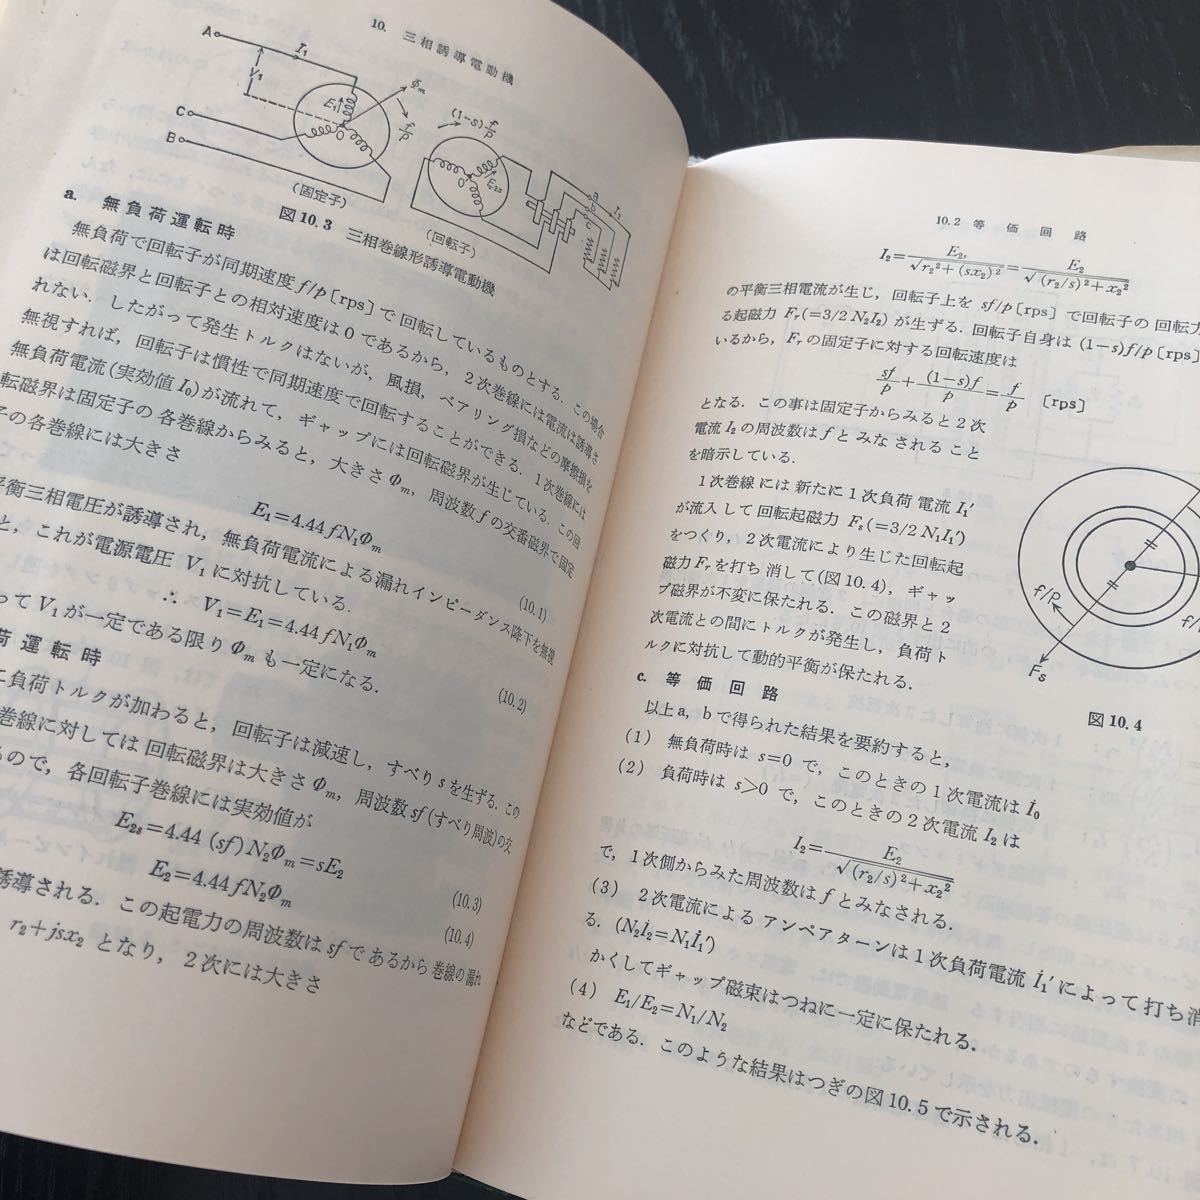 10. 三相誘導電動機
A
I₁
V₁
E₁
Φm
f/p
C
B
0
(固定子)
(1−s)f/p
E₂s
0
a
b
c
I₂
(回転子)
図10.3 三相巻線形誘導電動機
a. 無負荷運転時
無負荷で回転子が同期速度 f/p [rps] で回転しているものとする. この場合
は回転磁界と回転子との相対速度は0であるから, 2次巻線には電流は誘導さ
れない. したがって発生トルクはないが, 風損, ベアリング損などの摩擦損を
無視すれば, 回転子は慣性で同期速度で回転することができる. 1次巻線には
無負荷電流(実効値 I₀)が流れて, ギャップには回転磁界が生じている. この回
転磁界は固定子の各巻線からみると, 大きさ Φm, 周波数 f の交番磁界で固定
子の各巻線には大きさ
E₁=4.44 fN₁Φm (10.1)
平衡三相電圧が誘導され, 無負荷電流による漏れインピーダンス降下を無視
と, これが電源電圧 V₁ に対抗している.
∴ V₁=E₁=4.44 fN₁Φm (10.2)
って V₁ が一定である限り Φm も一定になる.
荷運転時
に負荷トルクが加わると, 回転子は減速し, すべり s を生ずる. この
巻線に対しては回転磁界は大きさ Φm, 周波数 sf (すべり周波)の交
るので, 各回転子巻線には実効値が
E₂s=4.44 (sf) N₂Φm=sE₂ (10.3)
E₂=4.44 fN₂Φm (10.4)
誘導される. この起電力の周波数は sf であるから巻線の漏れ
r₂+jsx₂ となり, 2次には大きさ
10.2 等価回路
I₂=E₂s/√(r₂²+(sx₂)²)=E₂/√((r₂/s)²+x₂²)
の平衡三相電流が生じ, 回転子上を sf/p [rps] で回転子の回転方
る起磁力 Fr(=3/2 N₂I₂) が生ずる. 回転子自身は (1−s)f/p [rps]
いるから, Fr の固定子に対する回転速度は
sf/p+(1−s)f/p=f/p [rps]
となる. この事は固定子からみると2次
電流 I₂ の周波数は f とみなされること
を暗示している.
1次巻線には新たに1次負荷電流 I₁′
が流入して回転起磁力 Fs(=3/2 N₁I₁′)
をつくり, 2次電流により生じた回転起
磁力 Fr を打ち消して(図10.4), ギャッ
プ磁界が不変に保たれる. この磁界と2
次電流との間にトルクが発生し, 負荷ト
ルクに対抗して動的平衡が保たれる.
f/p
f/
Fs
図10.4
c. 等価回路
以上 a, b で得られた結果を要約すると,
(1) 無負荷時は s=0 で, このときの1次電流は İ₀
(2) 負荷時は s>0 で, このときの2次電流 I₂ は
I₂=E₂/√((r₂/s)²+x₂²)
で, 1次側からみた周波数は f とみなされる.
(3) 2次電流によるアンペアターンは1次負荷電流 İ₁′ によって打ち消
る. (N₂İ₂=N₁İ₁′)
かくしてギャップ磁束はつねに一定に保たれる.
(4) E₁/E₂=N₁/N₂
などである. このような結果はつぎの図10.5で示される.